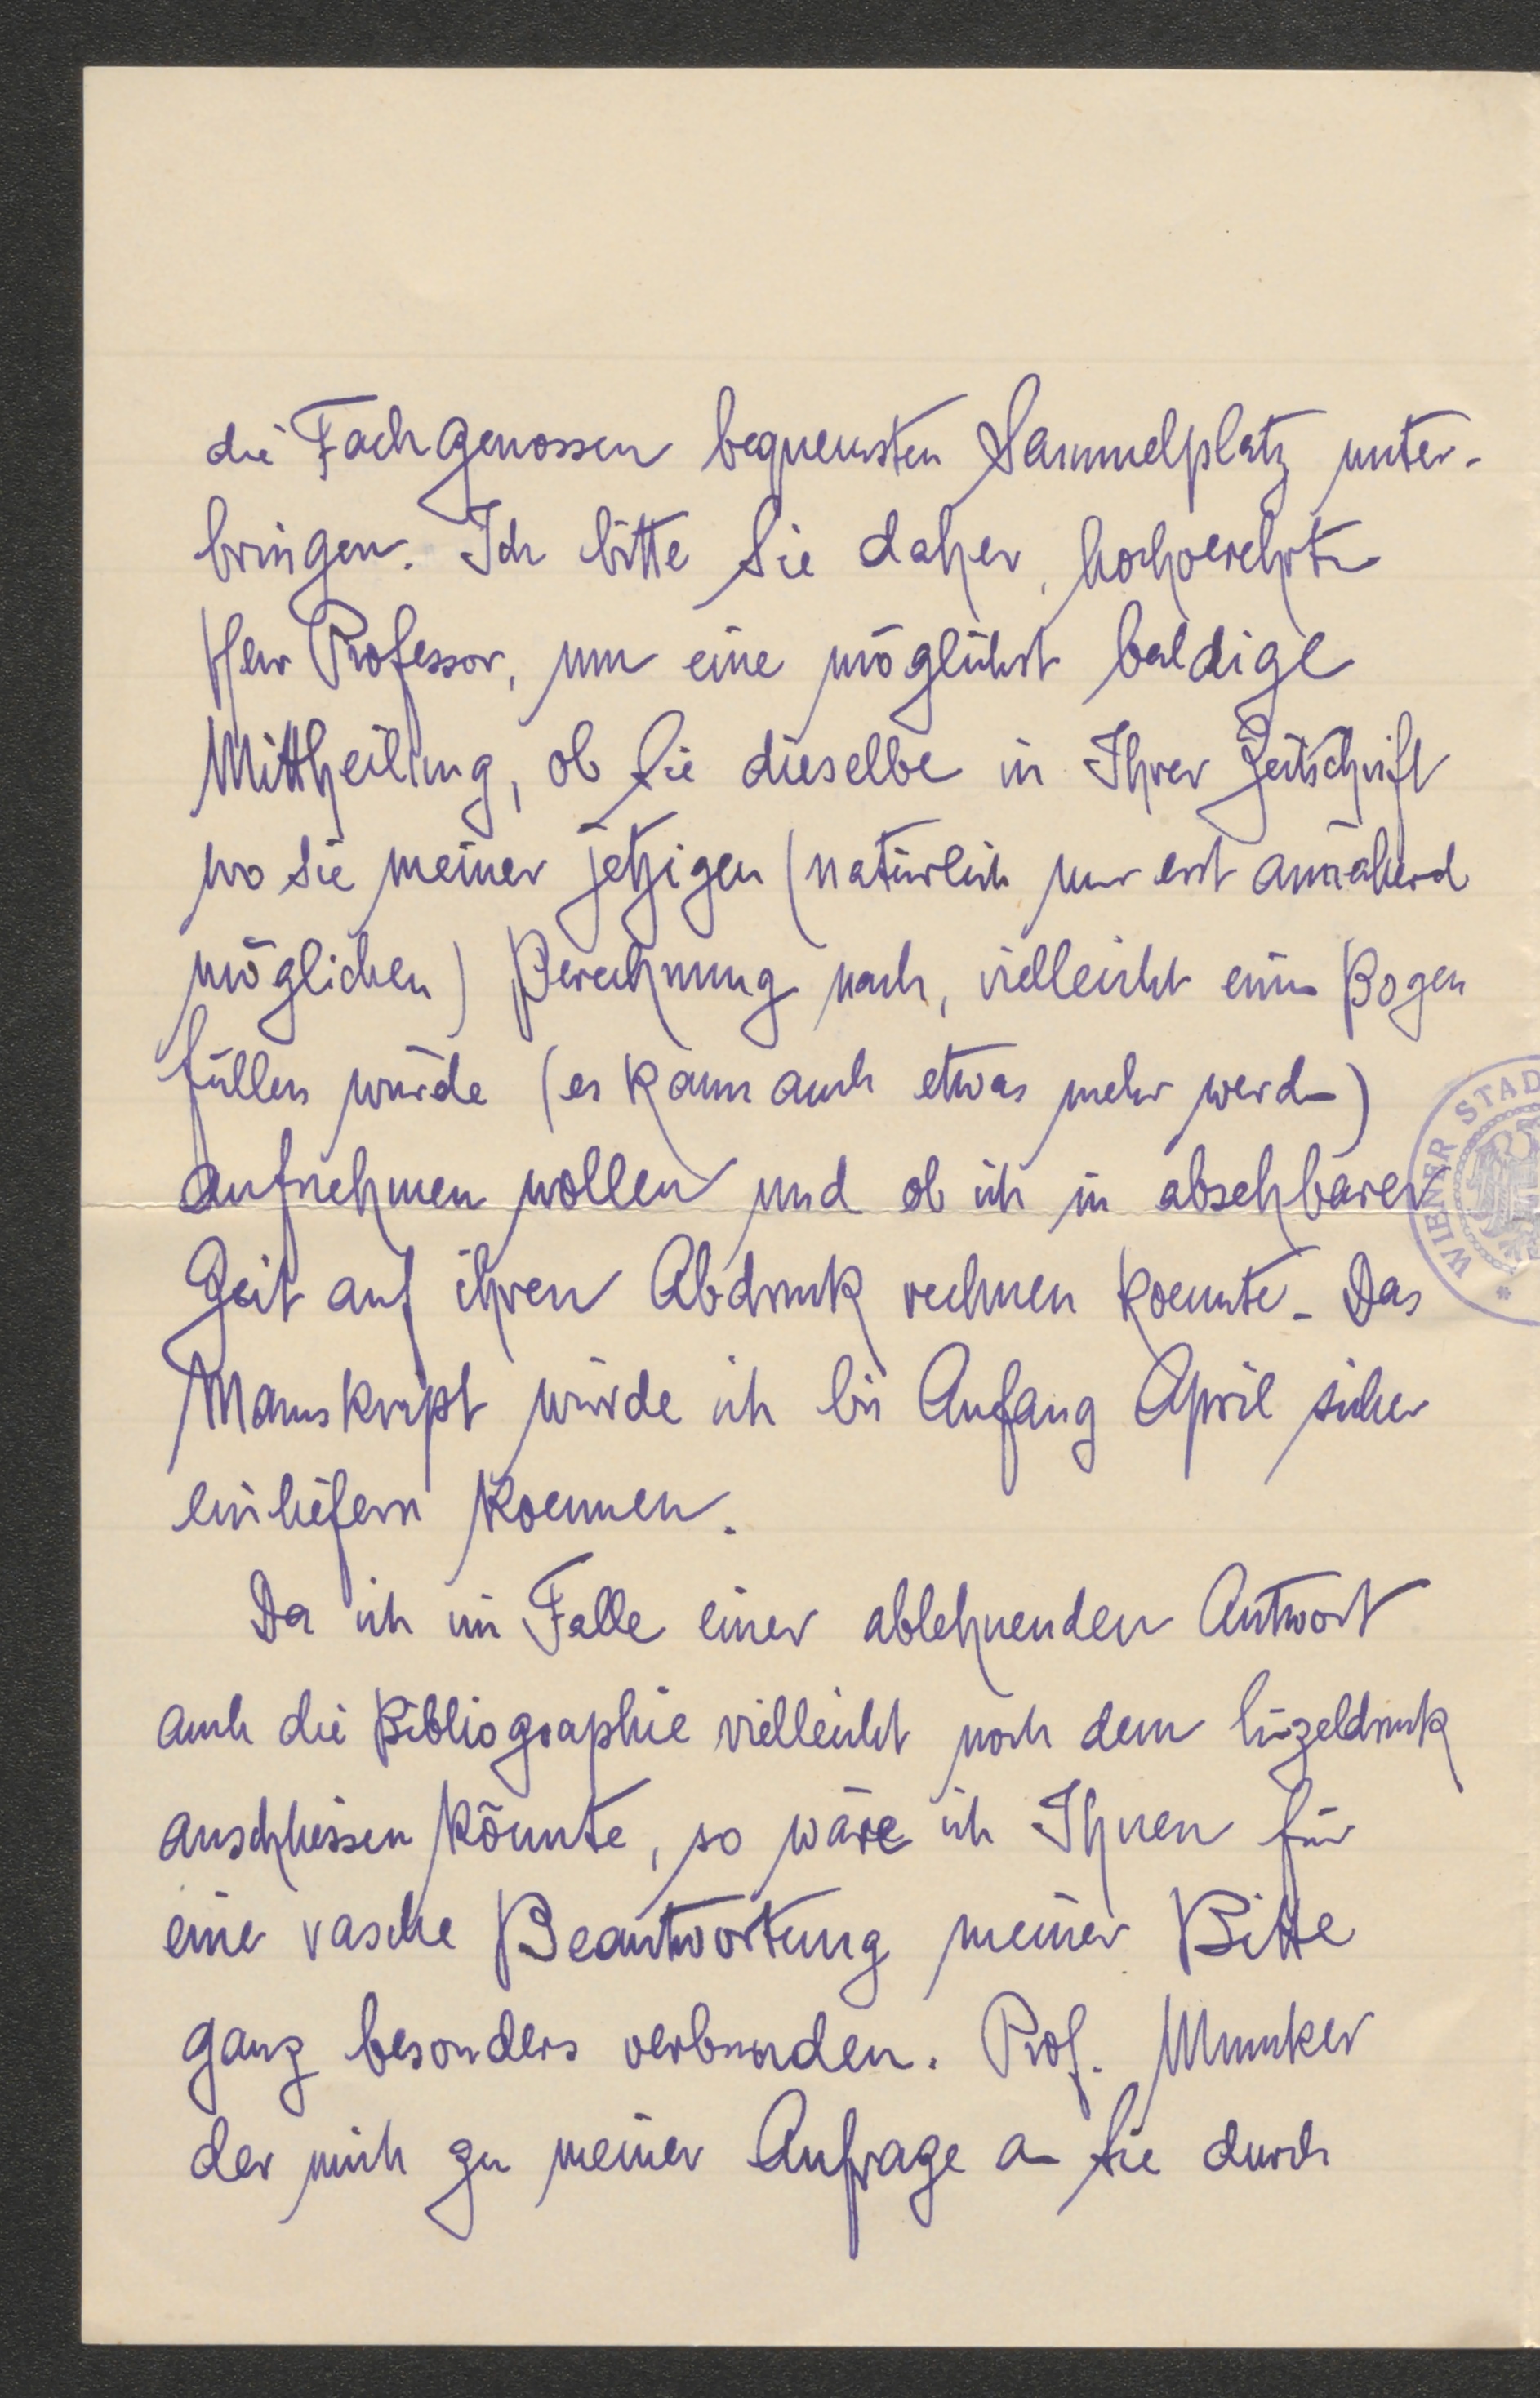 die Fachgenossen bequemsten Sammelplatz unter-
bringen. Ich bitte Sie daher, hochverehrter
Herr Professor, um eine möglichst baldige
Mittheilung, ob Sie dieselbe in Ihrer Zeitschrift
wo sie meiner jetzigen (natürlich nur erst annähernd
möglichen) Berechnung nach, vielleicht einen Bogen
füllen würde (es kann auch etwas mehr werden)
aufnehmen wollen und ob ich in absehbarer
Zeit auf ihren Abdruck rechnen koennte. Das
Manuskript würde ich bis Anfang April sicher
einliefern koennen.
Da ich im Falle einer ablehnenden Antwort
auch die Bibliographie vielleicht noch dem
anschliessen könnte, so wäre ich Ihnen für
eine rasche Beantwortung meiner Bitte
ganz besonders verbunden. Prof. Munker
der mich zu meiner Anfrage an Sie durch
WIENER STAD